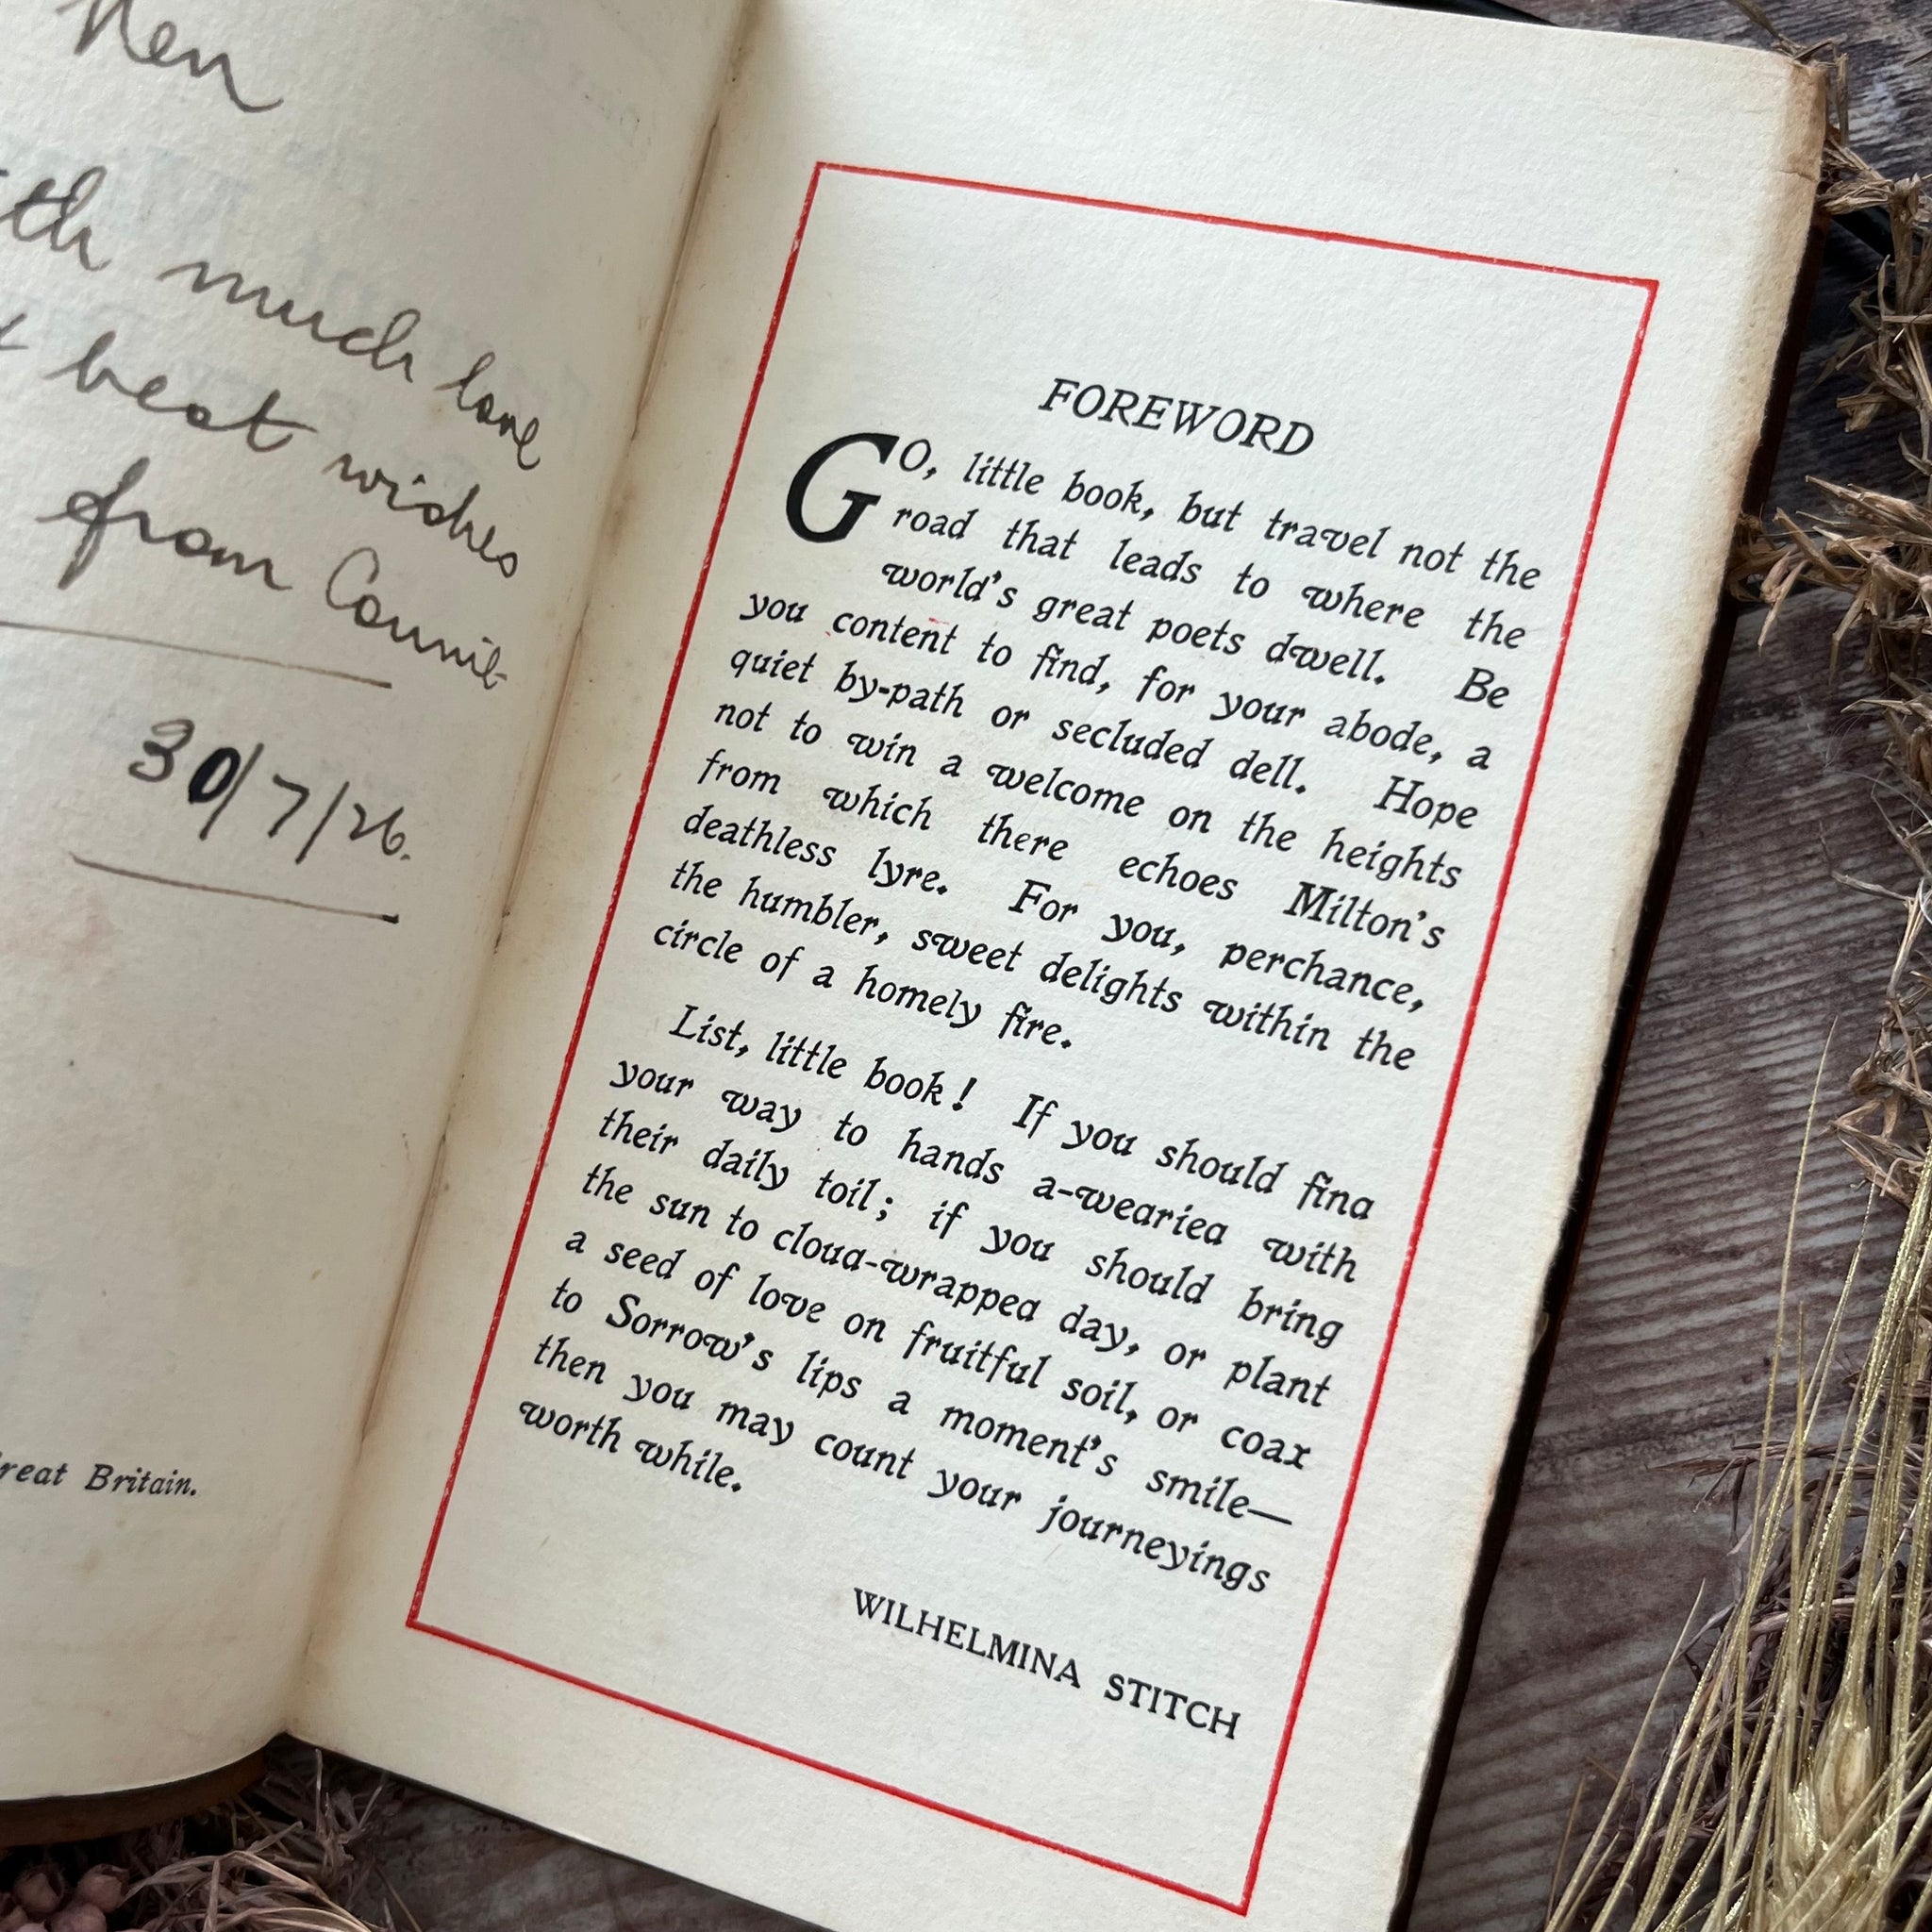 with much love
best wishes
from Connie
30/7/26.
Great Britain.
FOREWORD
GO, little book, but travel not the
road that leads to where the
world's great poets dwell. Be
you content to find, for your abode, a
quiet by-path or secluded dell. Hope
not to win a welcome on the heights
from which there echoes Milton's
deathless lyre. For you, perchance,
the humbler, sweet delights within the
circle of a homely fire.
List, little book! If you should find
your way to hands a-wearied with
their daily toil; if you should bring
the sun to cloud-wrapped day, or plant
a seed of love on fruitful soil, or coax
to Sorrow's lips a moment's smile—
then you may count your journeyings
worth while.
WILHELMINA STITCH